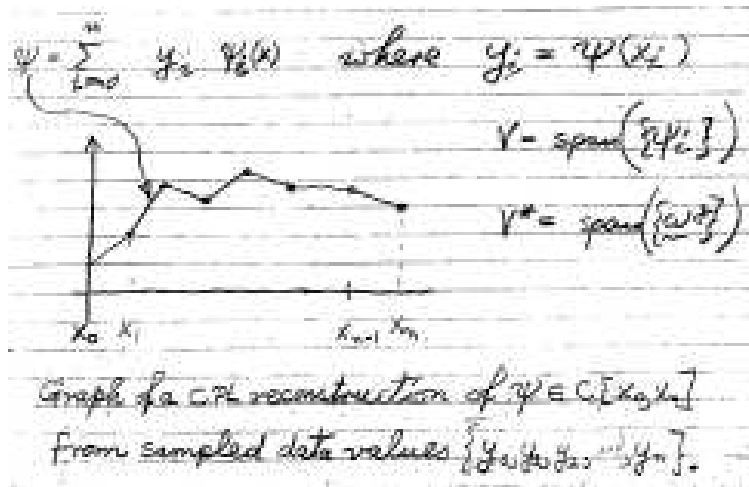 ψ = ∑ᵢ₌₀ⁿ yᵢ ψᵢ(x) where yᵢ = ψ(xᵢ)
V = span({ψᵢ})
V* = span({ωⁱ})
x₀ x₁ xₙ₋₁ xₙ
Graph of a CPL reconstruction of ψ ∈ C[x₀,xₙ]
from sampled data values {y₀,y₁,y₂,...,yₙ}.